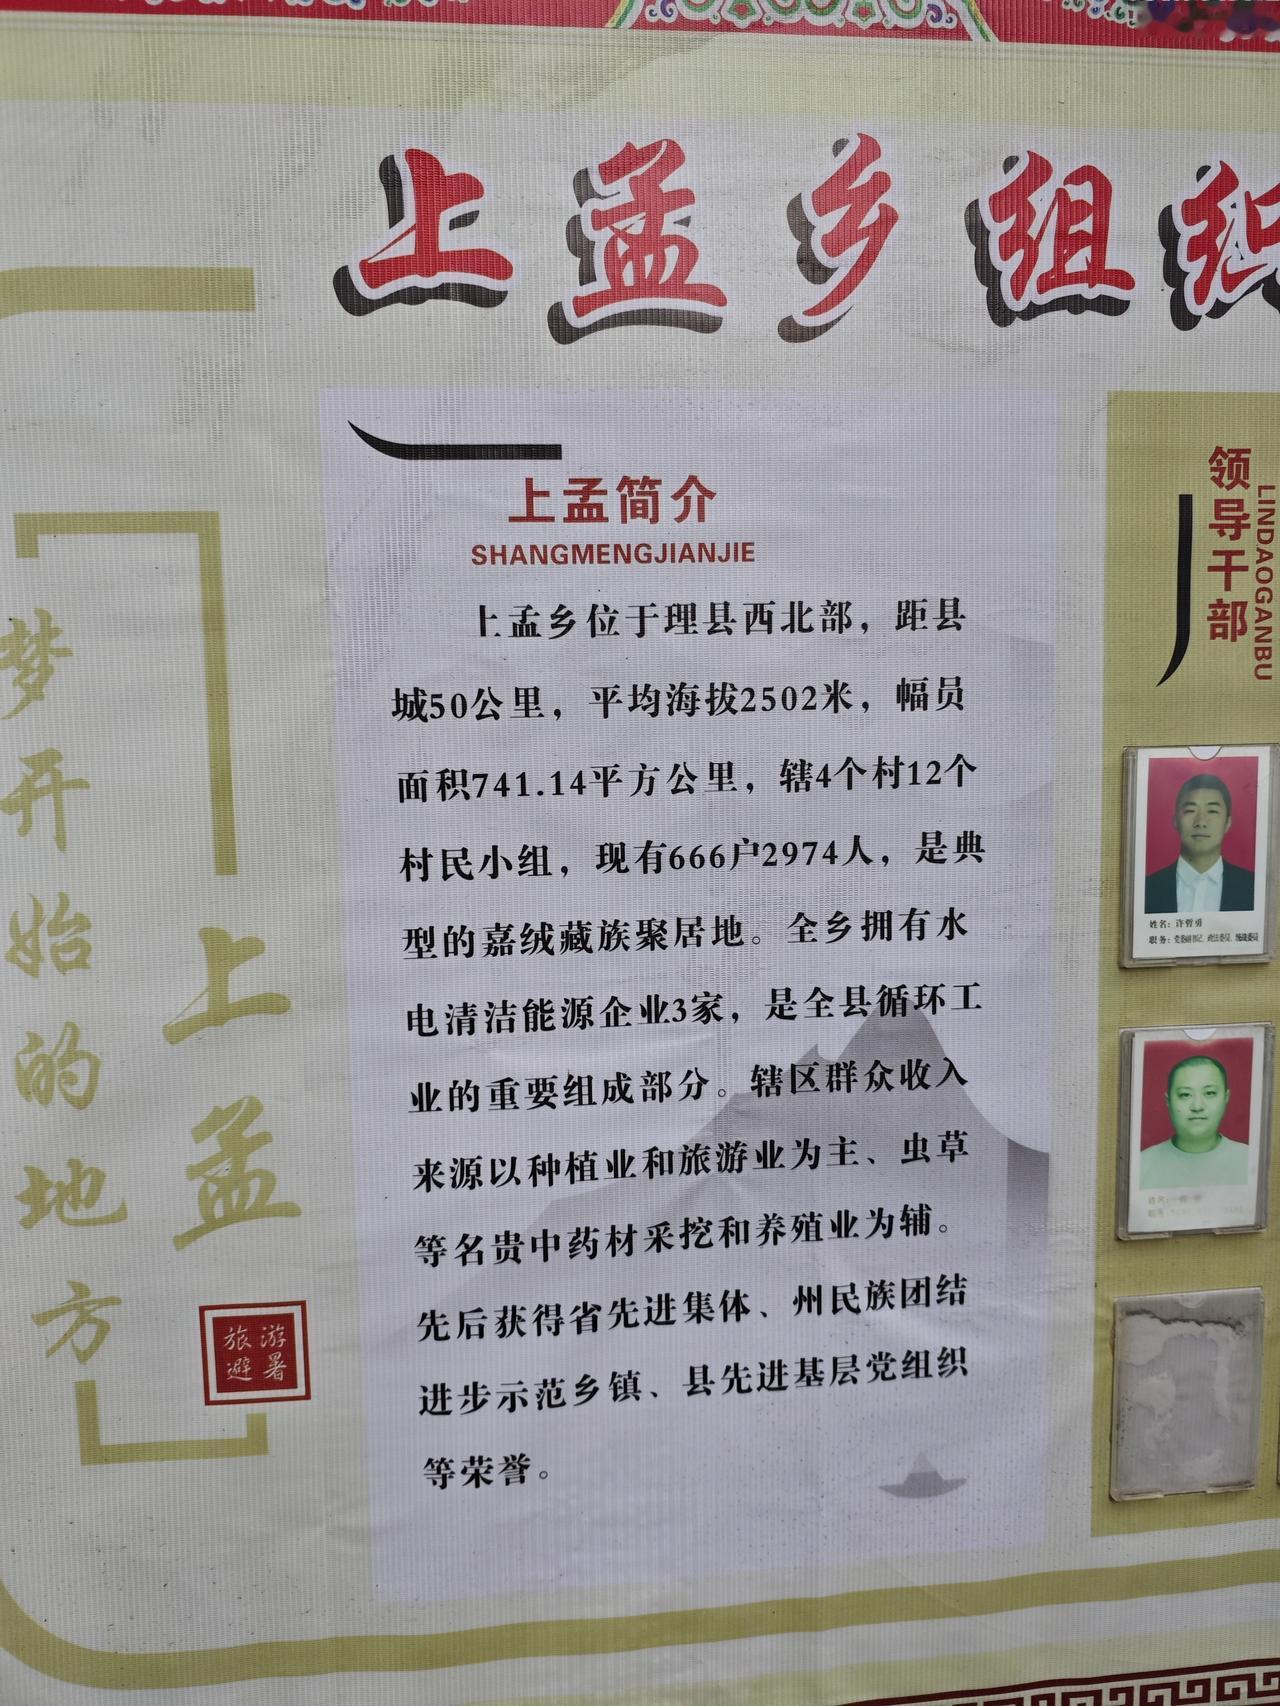 上孟乡组织
梦开始的地方
上孟
旅游
避暑
上孟简介
SHANGMENGJIANJIE
上孟乡位于理县西北部，距县
城50公里，平均海拔2502米，幅员
面积741.14平方公里，辖4个村12个
村民小组，现有666户2974人，是典
型的嘉绒藏族聚居地。全乡拥有水
电清洁能源企业3家，是全县循环工
业的重要组成部分。辖区群众收入
来源以种植业和旅游业为主、虫草
等名贵中药材采挖和养殖业为辅。
先后获得省先进集体、州民族团结
进步示范乡镇、县先进基层党组织
等荣誉。
领导干部
LINDAOGANBU
姓名：许哲勇
职务：党委副书记、政法委员、统战委员